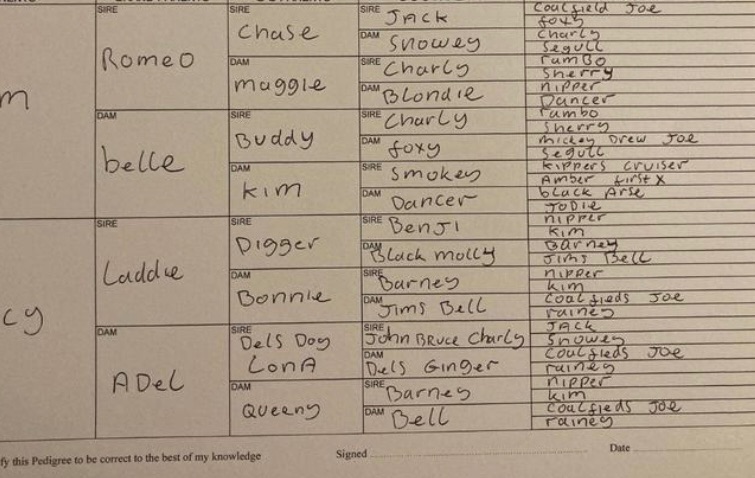 SIRE
Romeo
DAM
belle
SIRE
Laddie
DAM
ADel
SIRE
Chase
DAM
maggie
SIRE
Buddy
DAM
Kim
SIRE
Digger
DAM
Bonnie
SIRE
Dels Dog
LonA
DAM
Queeny
SIRE JACK
DAM Snowey
SIRE Charly
DAM Blondie
SIRE Charly
DAM foxy
SIRE Smokey
DAM Dancer
SIRE BenJI
DAM Black molly
SIRE Barney
DAM Jims Bell
SIRE John Bruce Charly
DAM Dels Ginger
SIRE Barney
DAM Bell
Coalfield Joe
foxy
Charly
Segull
rumBo
Sherry
nipper
Dancer
rambo
Sherry
mickey Drew Joe
Segull
Kippers Cruiser
Amber first X
black Arse
JoDie
nipper
Kim
Barney
Jims Bell
nipper
Kim
Coalfieds Joe
rainey
JACK
Snowey
Coalfieds Joe
rainey
nipper
Kim
Coalfieds Joe
rainey
m
cy
fy this Pedigree to be correct to the best of my knowledge
Signed
Date